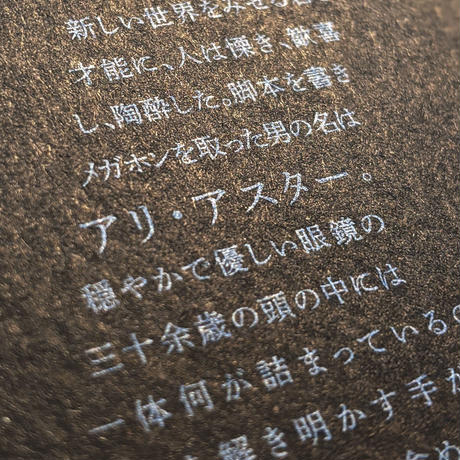 新しい世界をみせる
才能に、人は慄き、歓喜
し、陶酔した。脚本を書き
メガホンを取った男の名は
アリ・アスター。
穏やかで優しい眼鏡の
三十余歳の頭の中には
一体何が詰まっている
解き明かす手が